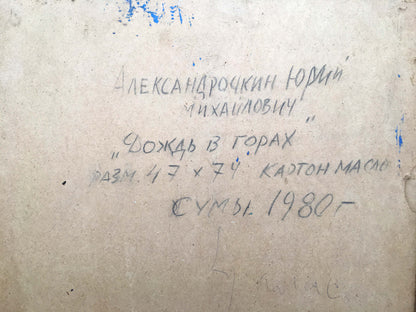 Александрочкин Юрий
Михайлович
„Дождь в горах"
разм. 47 х 74 картон масло
Сумы. 1980 г